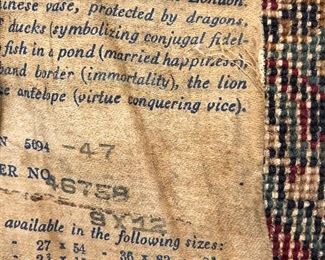 London.
inese vase, protected by dragons,
ducks (symbolizing conjugal fidel-
fish in a pond (married happiness),
band border (immortality), the lion
antelope (virtue conquering vice).
N 5094 -47
ER NO. 46758
9X12
available in the following sizes:
- 27 x 54 - 36 x 63